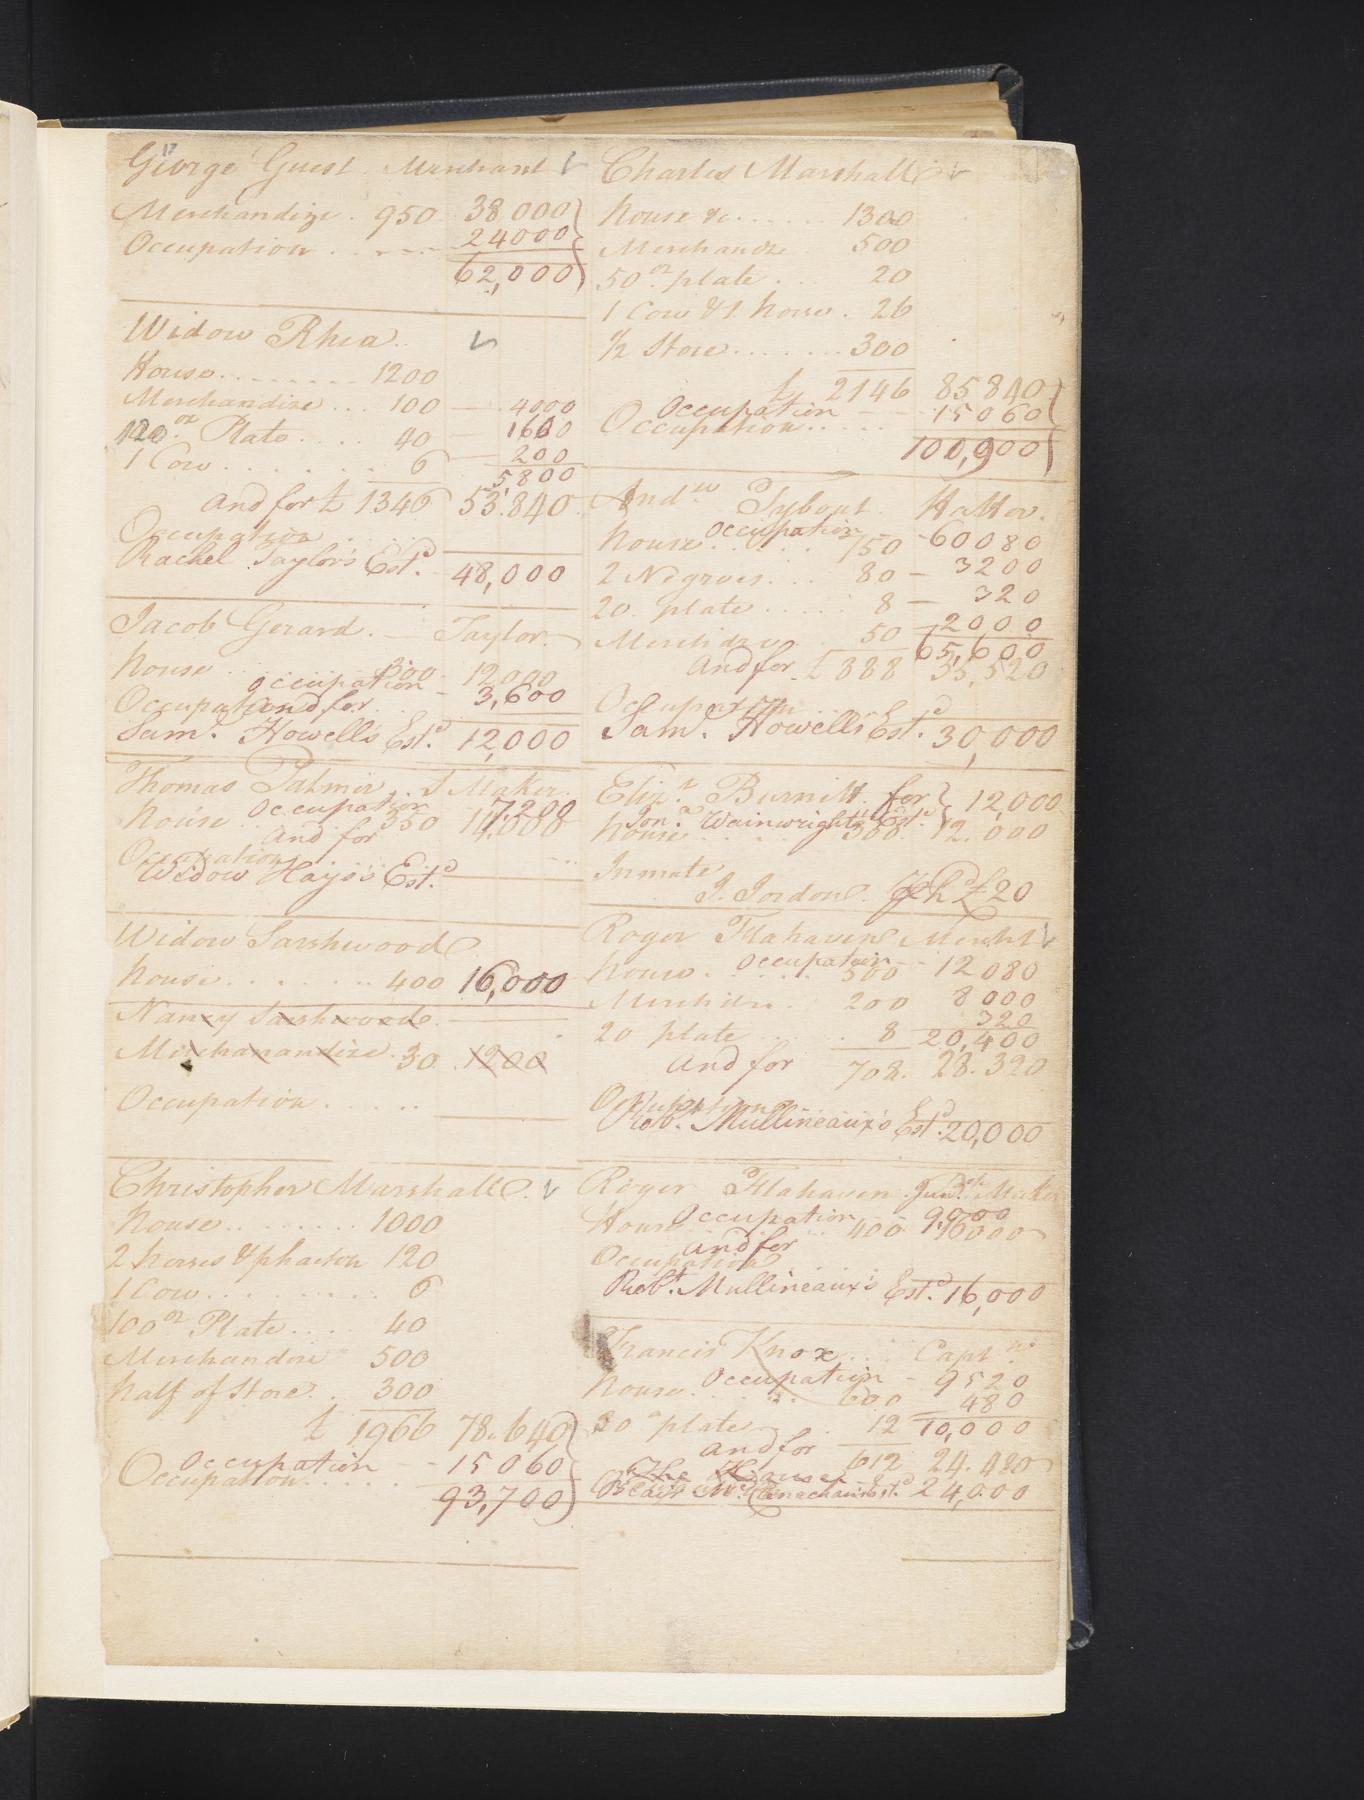 17
George Guest Merchant
Merchandize . 950 38000
Occupation . . . . . 24000
62,000
Widow Rhea
House . . . . . . . . 1200
Merchandize . . . 100 — 4000
120 oz Plate . . . . 40 — 1600
1 Cow . . . . . . . 6 — 200
5,800
And for £ 1346 53.840
Occupation . . .
Rachel Taylor's Estd. 48,000
Jacob Gerard. — Taylor
house 300 12000
Occupation - 3,600
Occupation And for
Saml. Howell's Estd. 12,000
Thomas Palmer. S Maker.
Occupation 7200
house 350
And for
Occupation
Widow Hays's Estd.
Widow Sarshwood
house . . . . . . . . 400 16,000
Nancy Sarshwood.
Merchanandize . 30 . 1200
Occupation . . . . . .
Christopher Marshall.
house . . . . . . . . 1000
2 horses & phaeton 120
1 Cow . . . . . . . . . 6
100 oz Plate . . . . 40
Merchandize 500
half of Store . . 300
£ 1966 78.640
Occupation - - 15060
Occupation . . . . . .
93,700
Charles Marshall
house &c . . . . . . 1300
Merchandze 500
50 oz plate . . . 20
1 Cow & 1 horse . 26
1/2 Store . . . . . . . 300
£ 2146 85840
Occupation - - - 15060
Occupation . . . . .
100,900
Andw Tybout. Hatter.
Occupation - 60080
house . . . . . 750
2 Negroes . . . 80 — 3200
20. plate . . . . . . 8 — 320
Merchdze 50 — 2000
65,600
And for £ 888 35,520
Occupation
Saml. Howells Estd. 30,000
Elizh Burnitt for 12,000
Jona Wainwright's Estd.
house . . . . . 300 12.000
Inmate
J. Jordon. ph £20
Roger Flahaven Mercht
Occupation - - 12080
house . . . . . 500
Merchdze . 200 8000
20 plate . 8 320
20,400
And for 708. 28.320
Occupation
Robt. Mullineaux's Estd. 20,000
Roger Flahaven Junr. Maker
Occupation 9000
House 400 16000
And for
Occupation
Robt. Mullineaux's Estd. 16,000
Francis Knox . . . Captn.
Occupation - 9520
house . . . . . . 600 480
30 oz plate . 12 10,000
And for 612 24.480
The House
Estd. 24,000